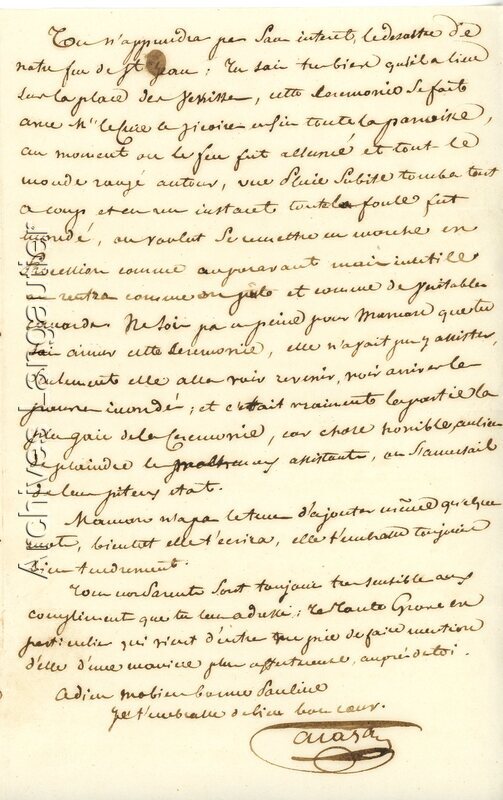 Tu n'apprendra pas sans interet, le desastre de
notre feu de St Jean : Tu sais tres bien qu'il a lieu
sur la place des , cette Ceremonie se fait
avec Mr le Cure le vicaire enfin toute la paroisse,
au moment ou le feu fut allumé et tout le
monde rangé autour, une pluie subite tomba tout
a coup et en un instant toute la foule fut
inondé, on voulut se remettre en marche en
procession comme auparavant mais inutile
on rentra comme on pût et comme de veritables
canards. Ne sois pas en peine pour Maman que tu
sais aimer cette Ceremonie, elle n'avait pu y assister,
seulement elle alla voir revenir, voir arriver le
inondé ; et c'etait vraiment la partie la
plus gaie de la Ceremonie, car chose horrible, au lieu
de plaindre les assistants, on s'amusait
de leur piteux etat.
Maman n'a pas le tems d'ajouter même quelque
mots, bientot elle t'écrira, elle t'embrasse toujours
bien tendrement.
Tous nos Parents sont toujours tres sensible aux
compliment que tu leur adresse ; la Tante en
particulier qui vient d'entrer me prie de faire mention
d'elle d'une maniere plus affectueuse, auprès de toi.
adieu ma bien bonne Pauline
Je t'embrasse de bien bon cœur.
Archives Lançautier